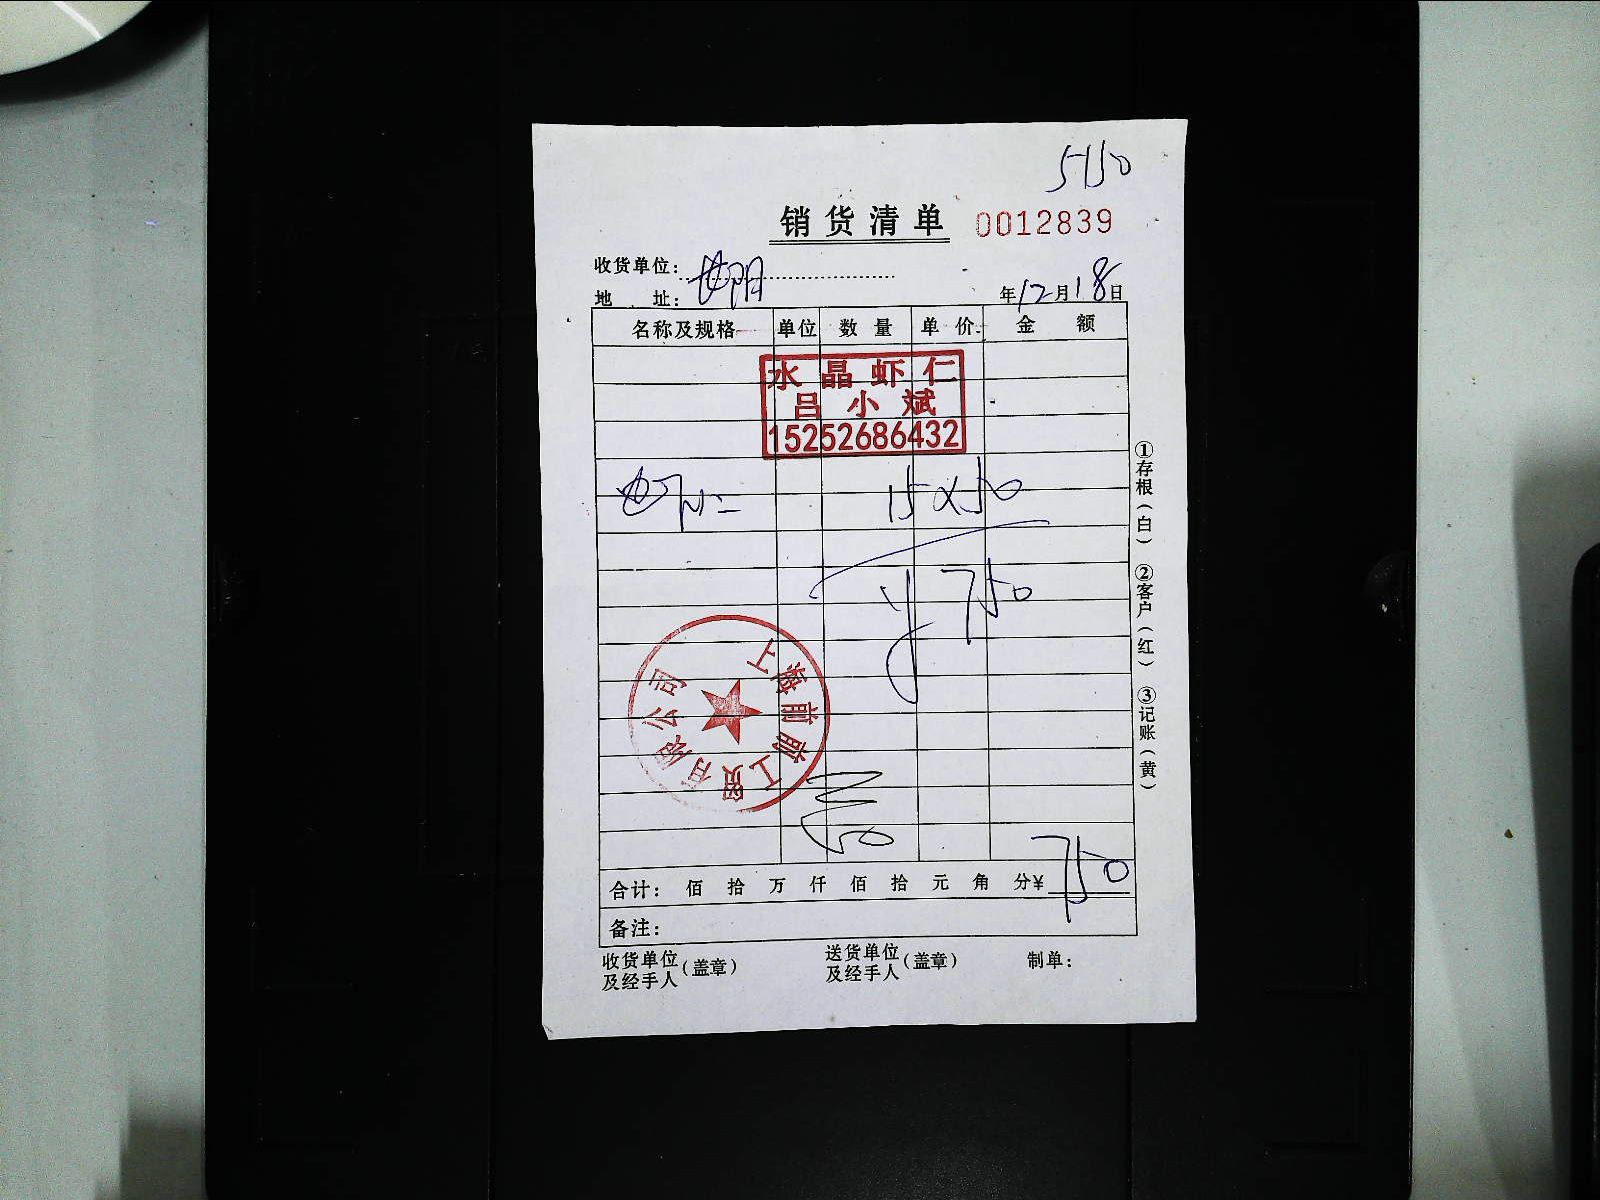 5150
销货清单 0012839
收货单位:
地 址:
年12月18日
名称及规格 单位 数量 单价 金额
水晶虾仁
吕小斌
15252686432
15×50
¥750
上海前前工贸有限公司
合计: 佰 拾 万 仟 佰 拾 元 角 分¥ 750
备注:
收货单位及经手人(盖章) 送货单位及经手人(盖章) 制单:
①存根(白) ②客户(红) ③记账(黄)